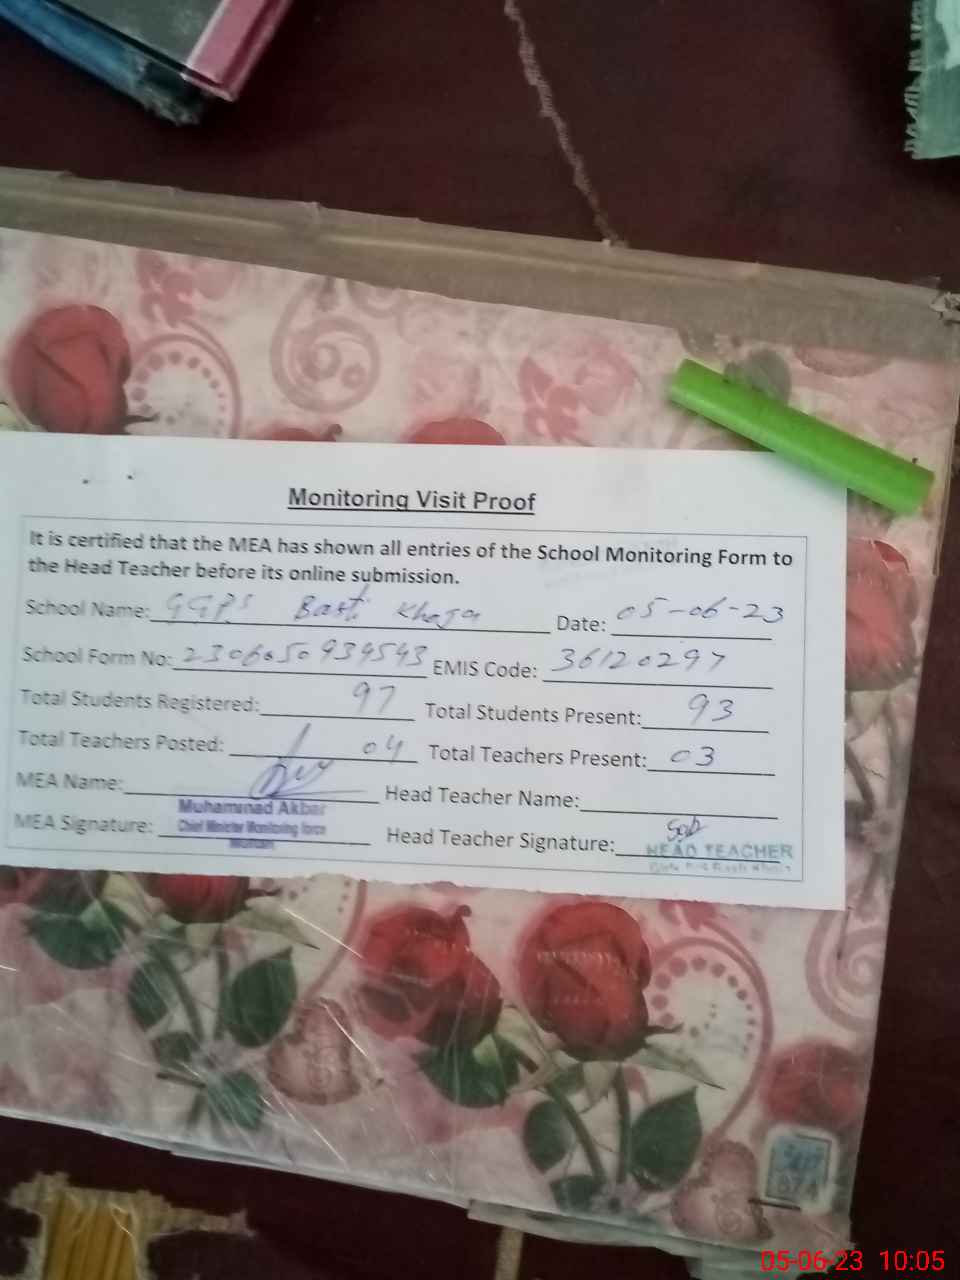 Monitoring Visit Proof
It is certified that the MEA has shown all entries of the School Monitoring Form to
the Head Teacher before its online submission.
School Name: GGPS Basti Khaja Date: 05-06-23
School Form No: 2306050939543 EMIS Code: 36120297
Total Students Registered: 97 Total Students Present: 93
Total Teachers Posted: 04 Total Teachers Present: 03
MEA Name: Head Teacher Name:
Muhammad Akbar
MEA Signature: Chief Minister Monitoring force Head Teacher Signature:
Multan HEAD TEACHER
05-06-23 10:05